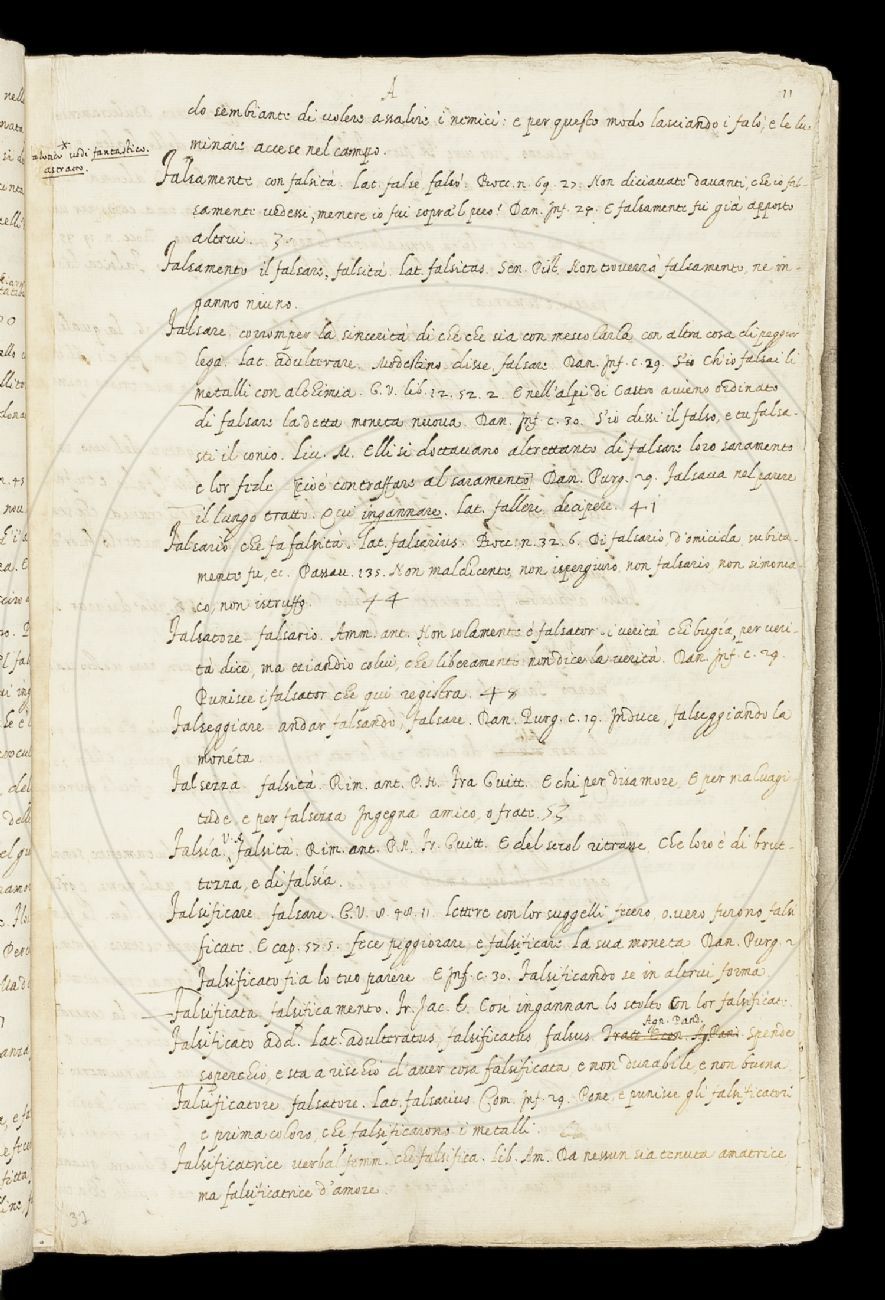 A
11
do sembiante di volere assalire i nemici: e per questo modo lasciando i falò, e le lu-
minare accese nel campo.
vedi fantastico.
astratto.
Falsamente con falsità. Lat. false falsò. Bocc. n. 69. 27. Non diciavate davanti, che io fal-
samente vedessi, mentre io fui sopra'l pero? Dan. Inf. 24. E falsamente fu già apposto
altrui. 3
Falsamento il falsare, falsità. Lat. falsitas. Sen. Pist. Non troverrà falsamento, ne in-
ganno niuno.
Falsare corromper la sincerità di che che sia con mescolarla con altra cosa di peggior
lega. Lat. adulterare. Modestino disse falsare. Dan. Inf. c. 29. S'io Ch'io falsai li
metalli con alchimia. G. V. lib. 12. 52. 2. E nell'alpi di Castro avieno ordinato
di falsare la detta moneta nuova. Dan. Inf. c. 30. S'io dissi il falso, e tu falsa-
sti il conio. Liv. M. Elli si dottavano altrettanto di falsare loro saramento
e lor fede [cioè contraffare al saramento] Dan. Purg. 29. Falsava nel parere
il lungo tratto. E qui ingannare. Lat. fallere, decipere. 41
Falsario che fa falsità. Lat. falsarius. Bocc. n. 32. 6. Di falsario, d'omicida subita-
mente fu, ec. Passav. 135. Non maldicente, non ispergiuro, non falsario, non simonia-
co, non istruffo. 44
Falsatore falsario. Amm. ant. Non solamente è falsator di verità chi bugia, per veri-
tà dice, ma etiandio colui, che liberamente non dice la verità. Dan. Inf. c. 29.
Punisce i falsator che qui registra. 48
Falseggiare andar falsando, falsare. Dan. Purg. c. 19. Induce, falseggiando la
monéta.
Falsezza falsità. Rim. ant. P. N. Fra Guitt. E chi per disamore, E per malvagi-
tade, e per falsezza Ingegna amico, o frate. 53
Falsía V. A. falsità. Rim. ant. P. N. Fr. Guitt. E del secol ritrasse, Che loro è di brut-
tezza, e di falsia.
Falsificare falsare. G. V. 8. 48. 11. Lettere con lor suggelli fecero, o vero furono falsi
ficate. E cap. 57. 5. fece peggiorare e falsificare la sua moneta Dan. Purg. 2
Falsificato fia lo tuo parere E Inf. c. 30. Falsificando se in altrui forma.
Falsificata falsificamento. Fr. Jac. T. Così ingannan lo stolto Con lor falsificat.
Agn. Pand.
Falsificato add. Lat. adultratus, falsificatus falsus Tratt. Econ. A. Pan. Spende
soperchio, e sta a rischio d'aver cosa falsificata e non durabile, e non buona
Falsificatore falsatore. Lat. falsarius. Com. Inf. 29. Pone, e punisce gli falsificatori
e prima coloro, che falsificarono i metalli.
Falsificatrice verbal femm. che falsifica. Lib. Am. Da nessun sia tenuta amatrice,
ma falsificatrice d'amore.
37